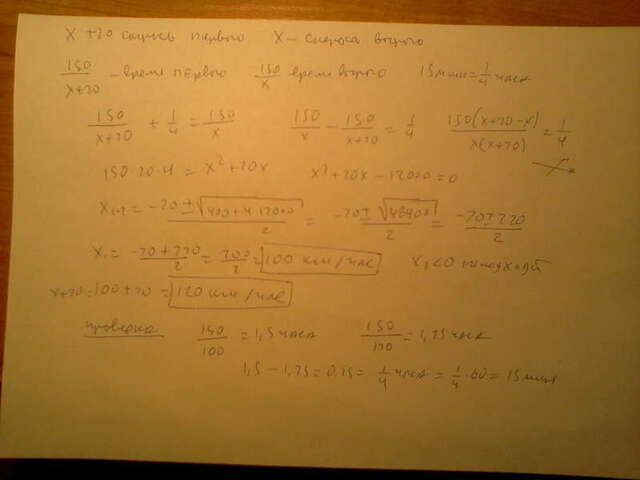 x+20 скорость первого x - скорость второго
150/(x+20) - время первого 150/x время второго 15 мин = 1/4 часа
150/(x+20) + 1/4 = 150/x 150/x - 150/(x+20) = 1/4 150(x+20-x)/(x(x+20)) = 1/4
150·20·4 = x²+20x x²+20x-12000=0
x₁,₂ = (-20±√(400+4·12000))/2 = (-20±√(48400))/2 = (-20±220)/2
x₁ = (-20+220)/2 = 200/2 = 100 км/час x₂<0 не подходит
x+20=100+20=120 км/час
проверка 150/100 = 1,5 часа 150/120 = 1,25 часа
1,5-1,25=0,25= 1/4 часа = 1/4·60=15 мин